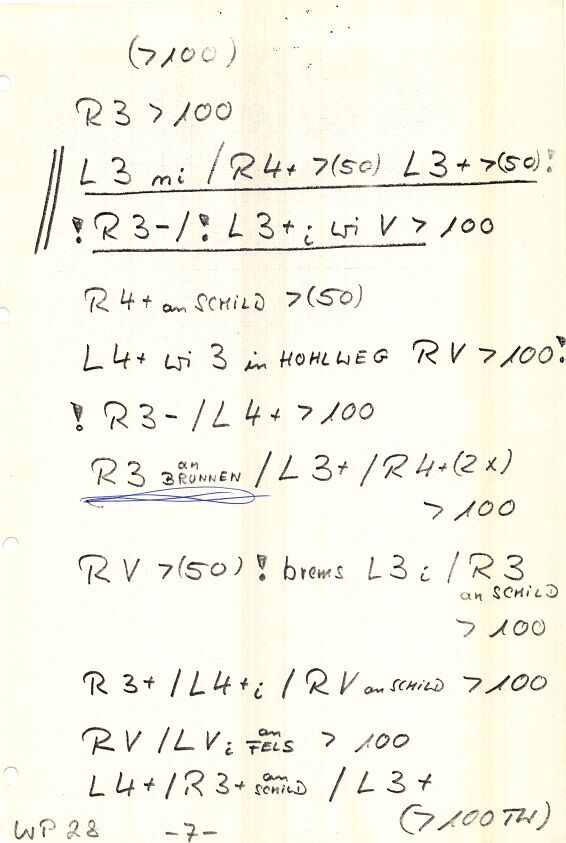 (>100)
R3 >100
L3 mi /R4+ >(50) L3+ >(50)!
! R3-/! L3+i wi V > 100
R4+ an SCHILD >(50)
L4+ wi 3 in HOHLWEG RV >100!
! R3- /L4+ >100
R3 an BRUNNEN /L3+ /R4+(2x)
>100
RV >(50) ! brems L3i /R3
an SCHILD
>100
R3+ /L4+i /RV an SCHILD >100
RV /LVi an FELS > 100
L4+/R3+ an SCHILD /L3+
(>100TW)
WP28 -7-